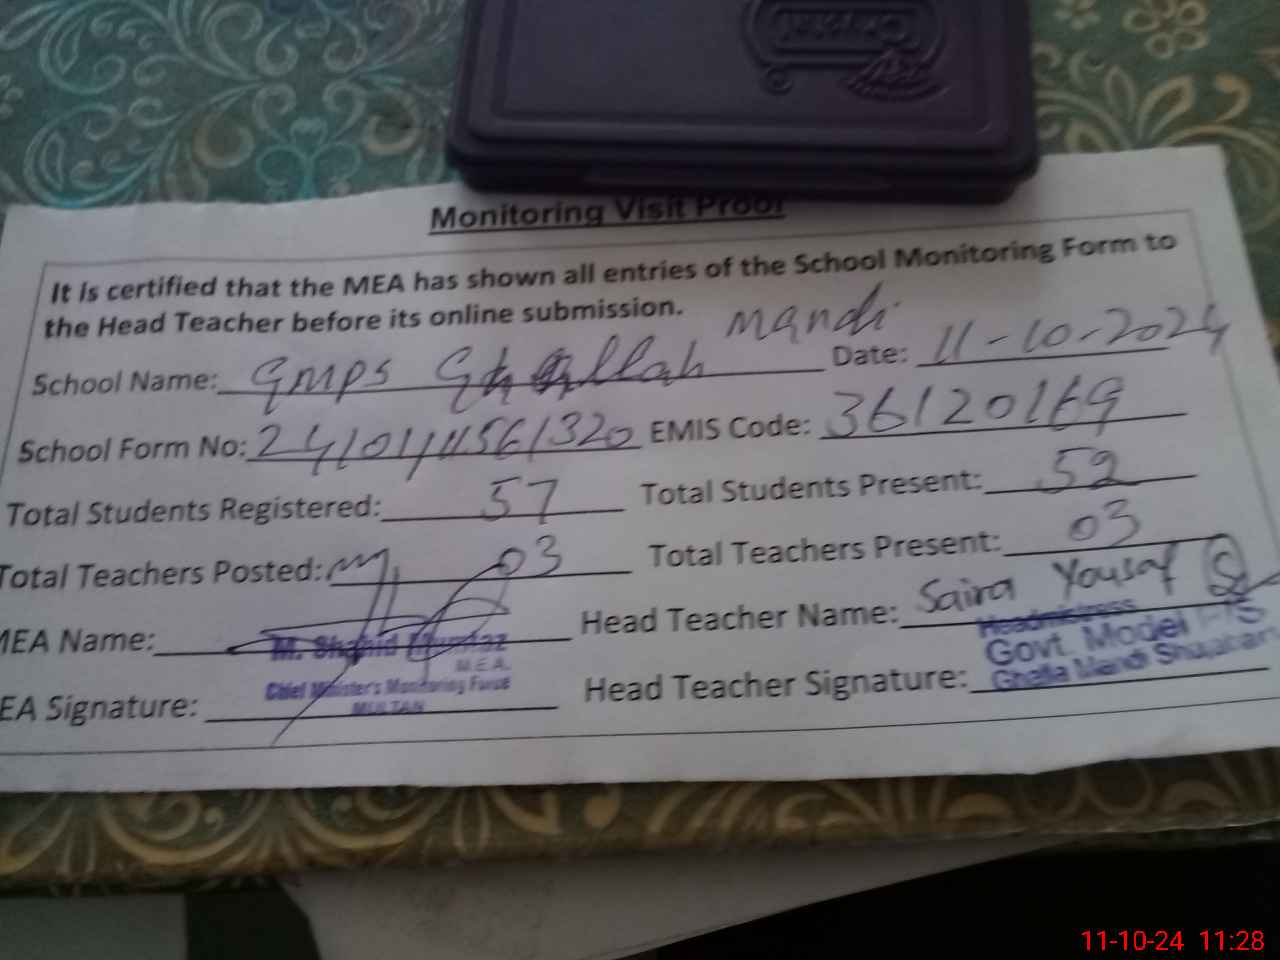 Crystal
Monitoring Visit Proof
It is certified that the MEA has shown all entries of the School Monitoring Form to
the Head Teacher before its online submission.
School Name: GMPS Ghallah Mandi Date: 11-10-2024
School Form No: EMIS Code: 36120169
Total Students Registered: 57 Total Students Present: 52
Total Teachers Posted: 03 Total Teachers Present: 03
MEA Name: M. Shahid Mumtaz Head Teacher Name: Saira Yousaf
M.E.A.
Chief Minister's Monitoring Force
MULTAN
EA Signature: Head Teacher Signature:
Headmistress
Govt. Model P/S
Ghalla Mandi Shujabad
11-10-24 11:28